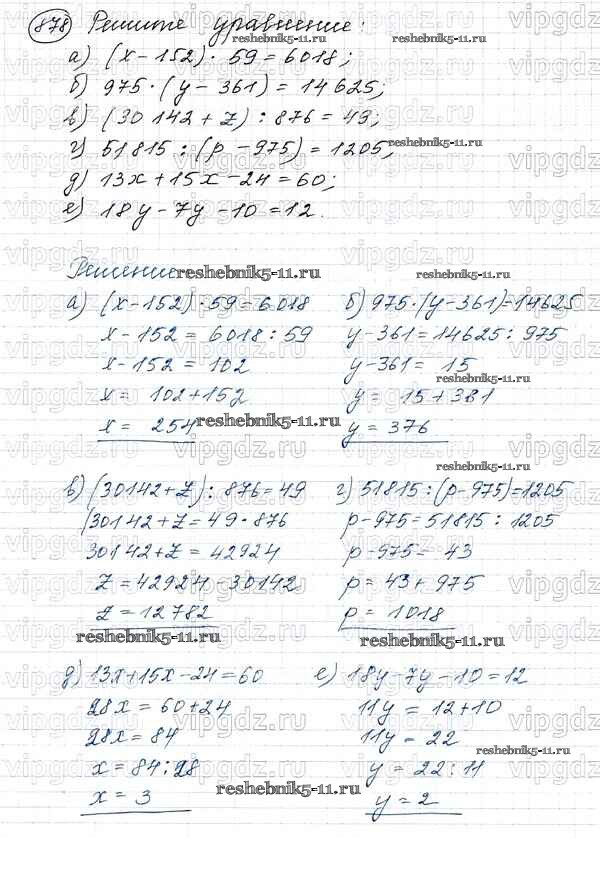 878 Решите уравнение:
а) (x-152)·59=6018;
б) 975·(y-361)=14625;
в) (30142+z):876=49;
г) 51815:(p-975)=1205;
д) 13x+15x-24=60;
е) 18y-7y-10=12.
Решение
а) (x-152)·59=6018
x-152=6018:59
x-152=102
x=102+152
x=254
б) 975·(y-361)=14625
y-361=14625:975
y-361=15
y=15+381
y=376
в) (30142+z):876=49
(30142+z=49·876
30142+z=42924
z=42924-30142
z=12782
г) 51815:(p-975)=1205
p-975=51815:1205
p-975=43
p=43+975
p=1018
д) 13x+15x-24=60
28x=60+24
28x=84
x=84:28
x=3
е) 18y-7y-10=12
11y=12+10
11y=22
y=22:11
y=2
reshebnik5-11.ru
vipgdz.ru